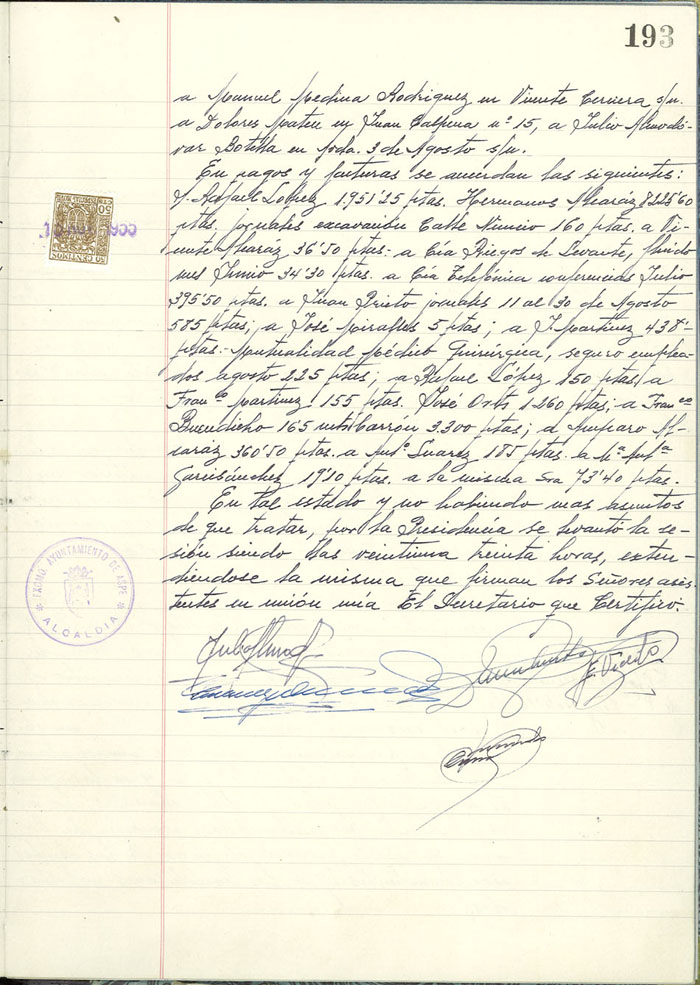 193
a Manuel Medina Rodriguez en Vicente Cervera s/n.
a Dolores Mateu en Juan Calpena nº 15, a Julio Almodó-
var Botella en Avda. 3 de Agosto s/n.
En pagos y facturas se acuerdan las siguientes:
Rafael López 1.951'25 ptas. Hermanos Alcaráz 8225'60
ptas. jornales excavación Calle Nuncio 160 ptas. a Vi-
cente Alcaráz 36'50 ptas: a Cía Riegos de Levante, fluido
mes Junio 34'30 ptas. a Cía Telefónica conferencias Julio
395'50 ptas. a Juan Prieto jornales 11 al 30 de Agosto
585 ptas; a José Miralles 5 ptas; a J. Martinez 438'-
ptas.- Mutualidad Médico Quirúrgica, seguro emplea-
dos agosto 225 ptas; a Rafael López 150 ptas; a
Fran.co Martinez 155 ptas. José Orts 1.260 ptas; a Fran.co
Buendicho 165 mts Carrón 3.300 ptas; a Amparo Al-
caráz 360'50 ptas. a Antº Suarez 185 ptas. a Mª Antª
Garcisánchez 19'10 ptas. a la misma Sra 73'40 ptas.
En tal estado y no habiendo mas asuntos
de que tratar, por la Presidencia se levantó la se-
sión siendo las veintiuna treinta horas, exten-
diendose la misma que firman los Señores asis-
tentes en unión mía El Secretario que Certifico:
50
50 CENTIMOS
EXCMO. AYUNTAMIENTO DE ASPE
ALCALDIA